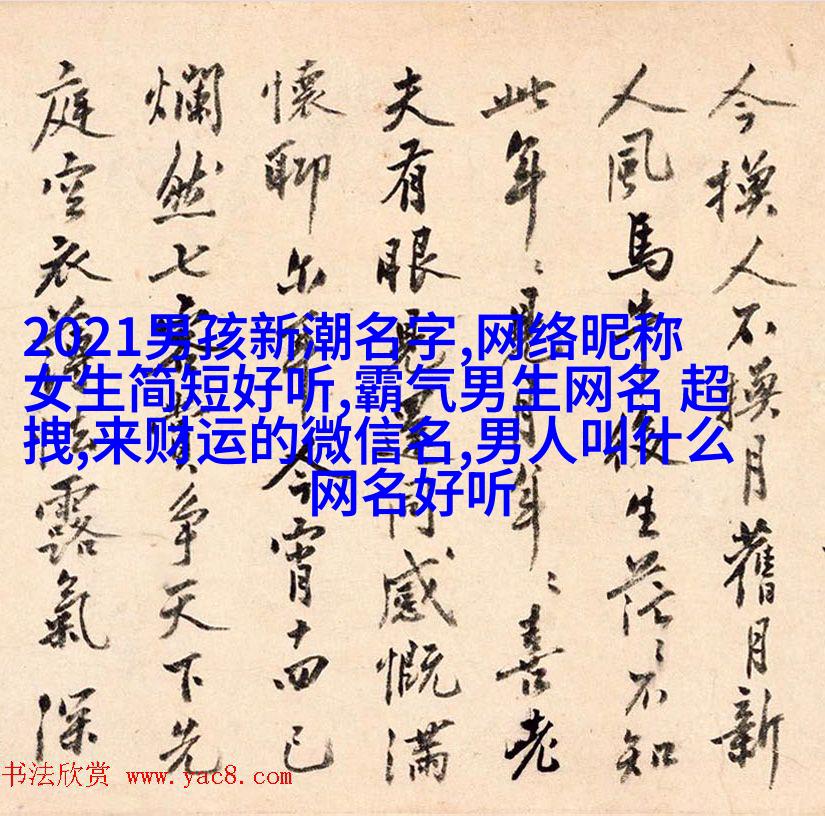 今換人不換月舊月新
人風馬牛後生茫〻不知
此年〻見月年〻喜老
夫有眼同感慨滿
懷聊尔今宵十四已
爛然七爭天下先
庭空衣露氣深
2021男孩新潮名字,网络昵称
女生简短好听,霸气男生网名 超
拽,来财运的微信名,男人叫什么
网名好听
书法欣赏 www.yac8.com